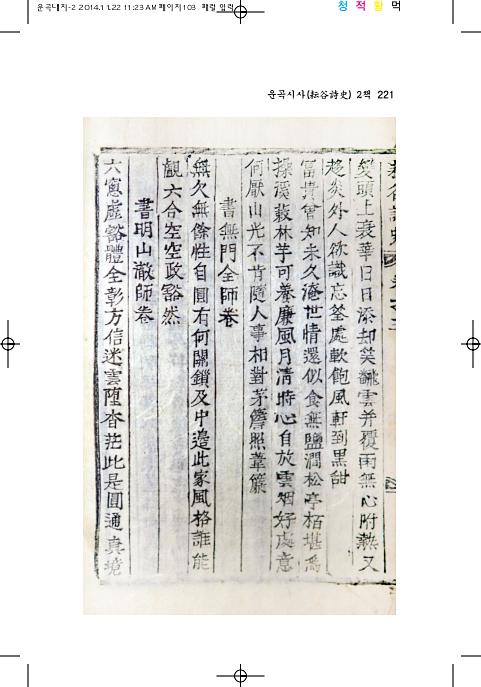 운곡대지-2 2014.11.22 11:23 AM 페이지103
청 적 황 먹
운곡시사(耘谷詩史) 2책 221
鬢頭上衰華日日添却笑飜雲并覆雨無心附熱又
趍炎外人欲識忘筌處軟飽風軒到黑甜
富貴曾知未久淹世情還似食無鹽澗松亭栢堪爲
操溪蔌林芋可養廉風月淸時心自放雲烟好處意
何厭山光不肯隨人事相對茅簷照葦簾
書無門全師卷
無欠無餘性自圓有何關鎖及中邊此家風格誰能
覰六合空空政豁然
書明山澈師卷
六窓虛豁體全彰方信迷雲墮杳茫此是圓通眞境